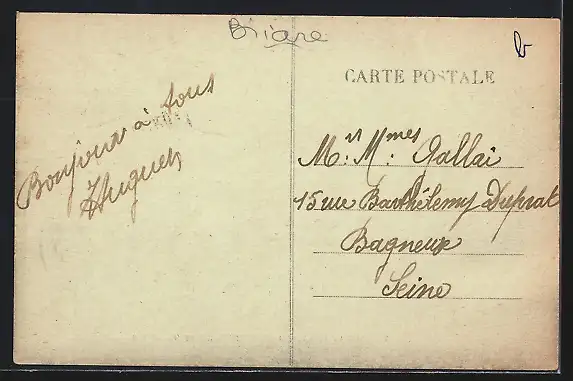 Briare
b
CARTE POSTALE
Bonjour à tous
Huguet
Mr. Mmes Gallai
15 rue Barthélemy Duprat
Bagneux
Seine